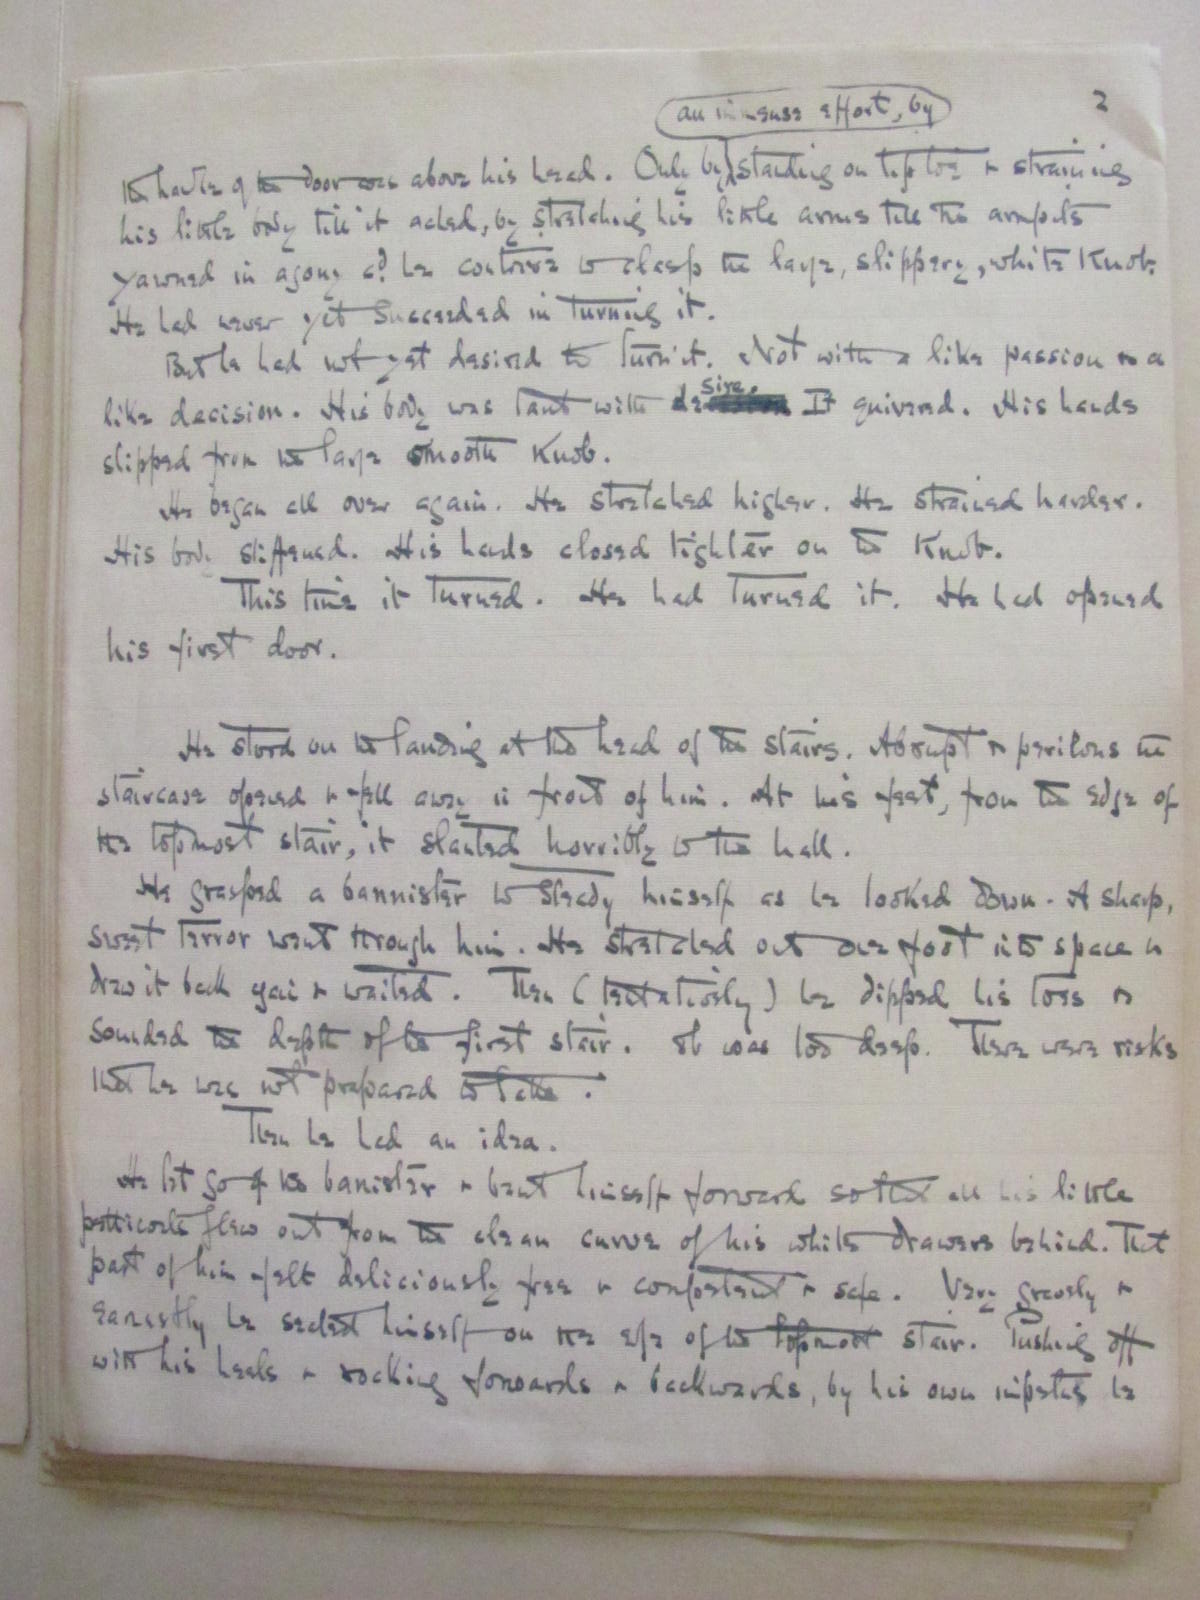 an immense effort, by
2
the handle of the door was above his head. Only by standing on tip toe & straining
his little body till it ached, by stretching his little arms till the armpits
yawned in agony cd he contrive to clasp the large, slippery, white Knob.
He had never yet succeeded in turning it.
But he had not yet desired to turn it. Not with a like passion & a
like decision. His body was taut with desire. It quivered. His hands
slipped from the large smooth Knob.
He began all over again. He stretched higher. He strained harder.
His body stiffened. His hands closed tighter on the Knob.
This time it turned. He had turned it. He had opened
his first door.
He stood on the landing at the head of the stairs. Abrupt & perilous the
staircase opened & fell away in front of him. At his feet, from the edge of
the topmost stair, it slanted horribly to the hall.
He grasped a bannister to steady himself as he looked down. A sharp,
sweet terror went through him. He stretched out one foot into space &
drew it back again & waited. Then (tentatively) he dipped his toes &
sounded the depth of the first stair. It was too deep. There were risks
that he was not prepared to take.
Then he had an idea.
He let go of the banister & bent himself forward so that all his little
petticoats flew out from the clean curve of his white drawers behind. That
part of him felt deliciously free & competent & safe. Very gravely &
earnestly he seated himself on the edge of the topmost stair. Pushing off
with his heels & rocking forwards & backwards, by his own impetus he